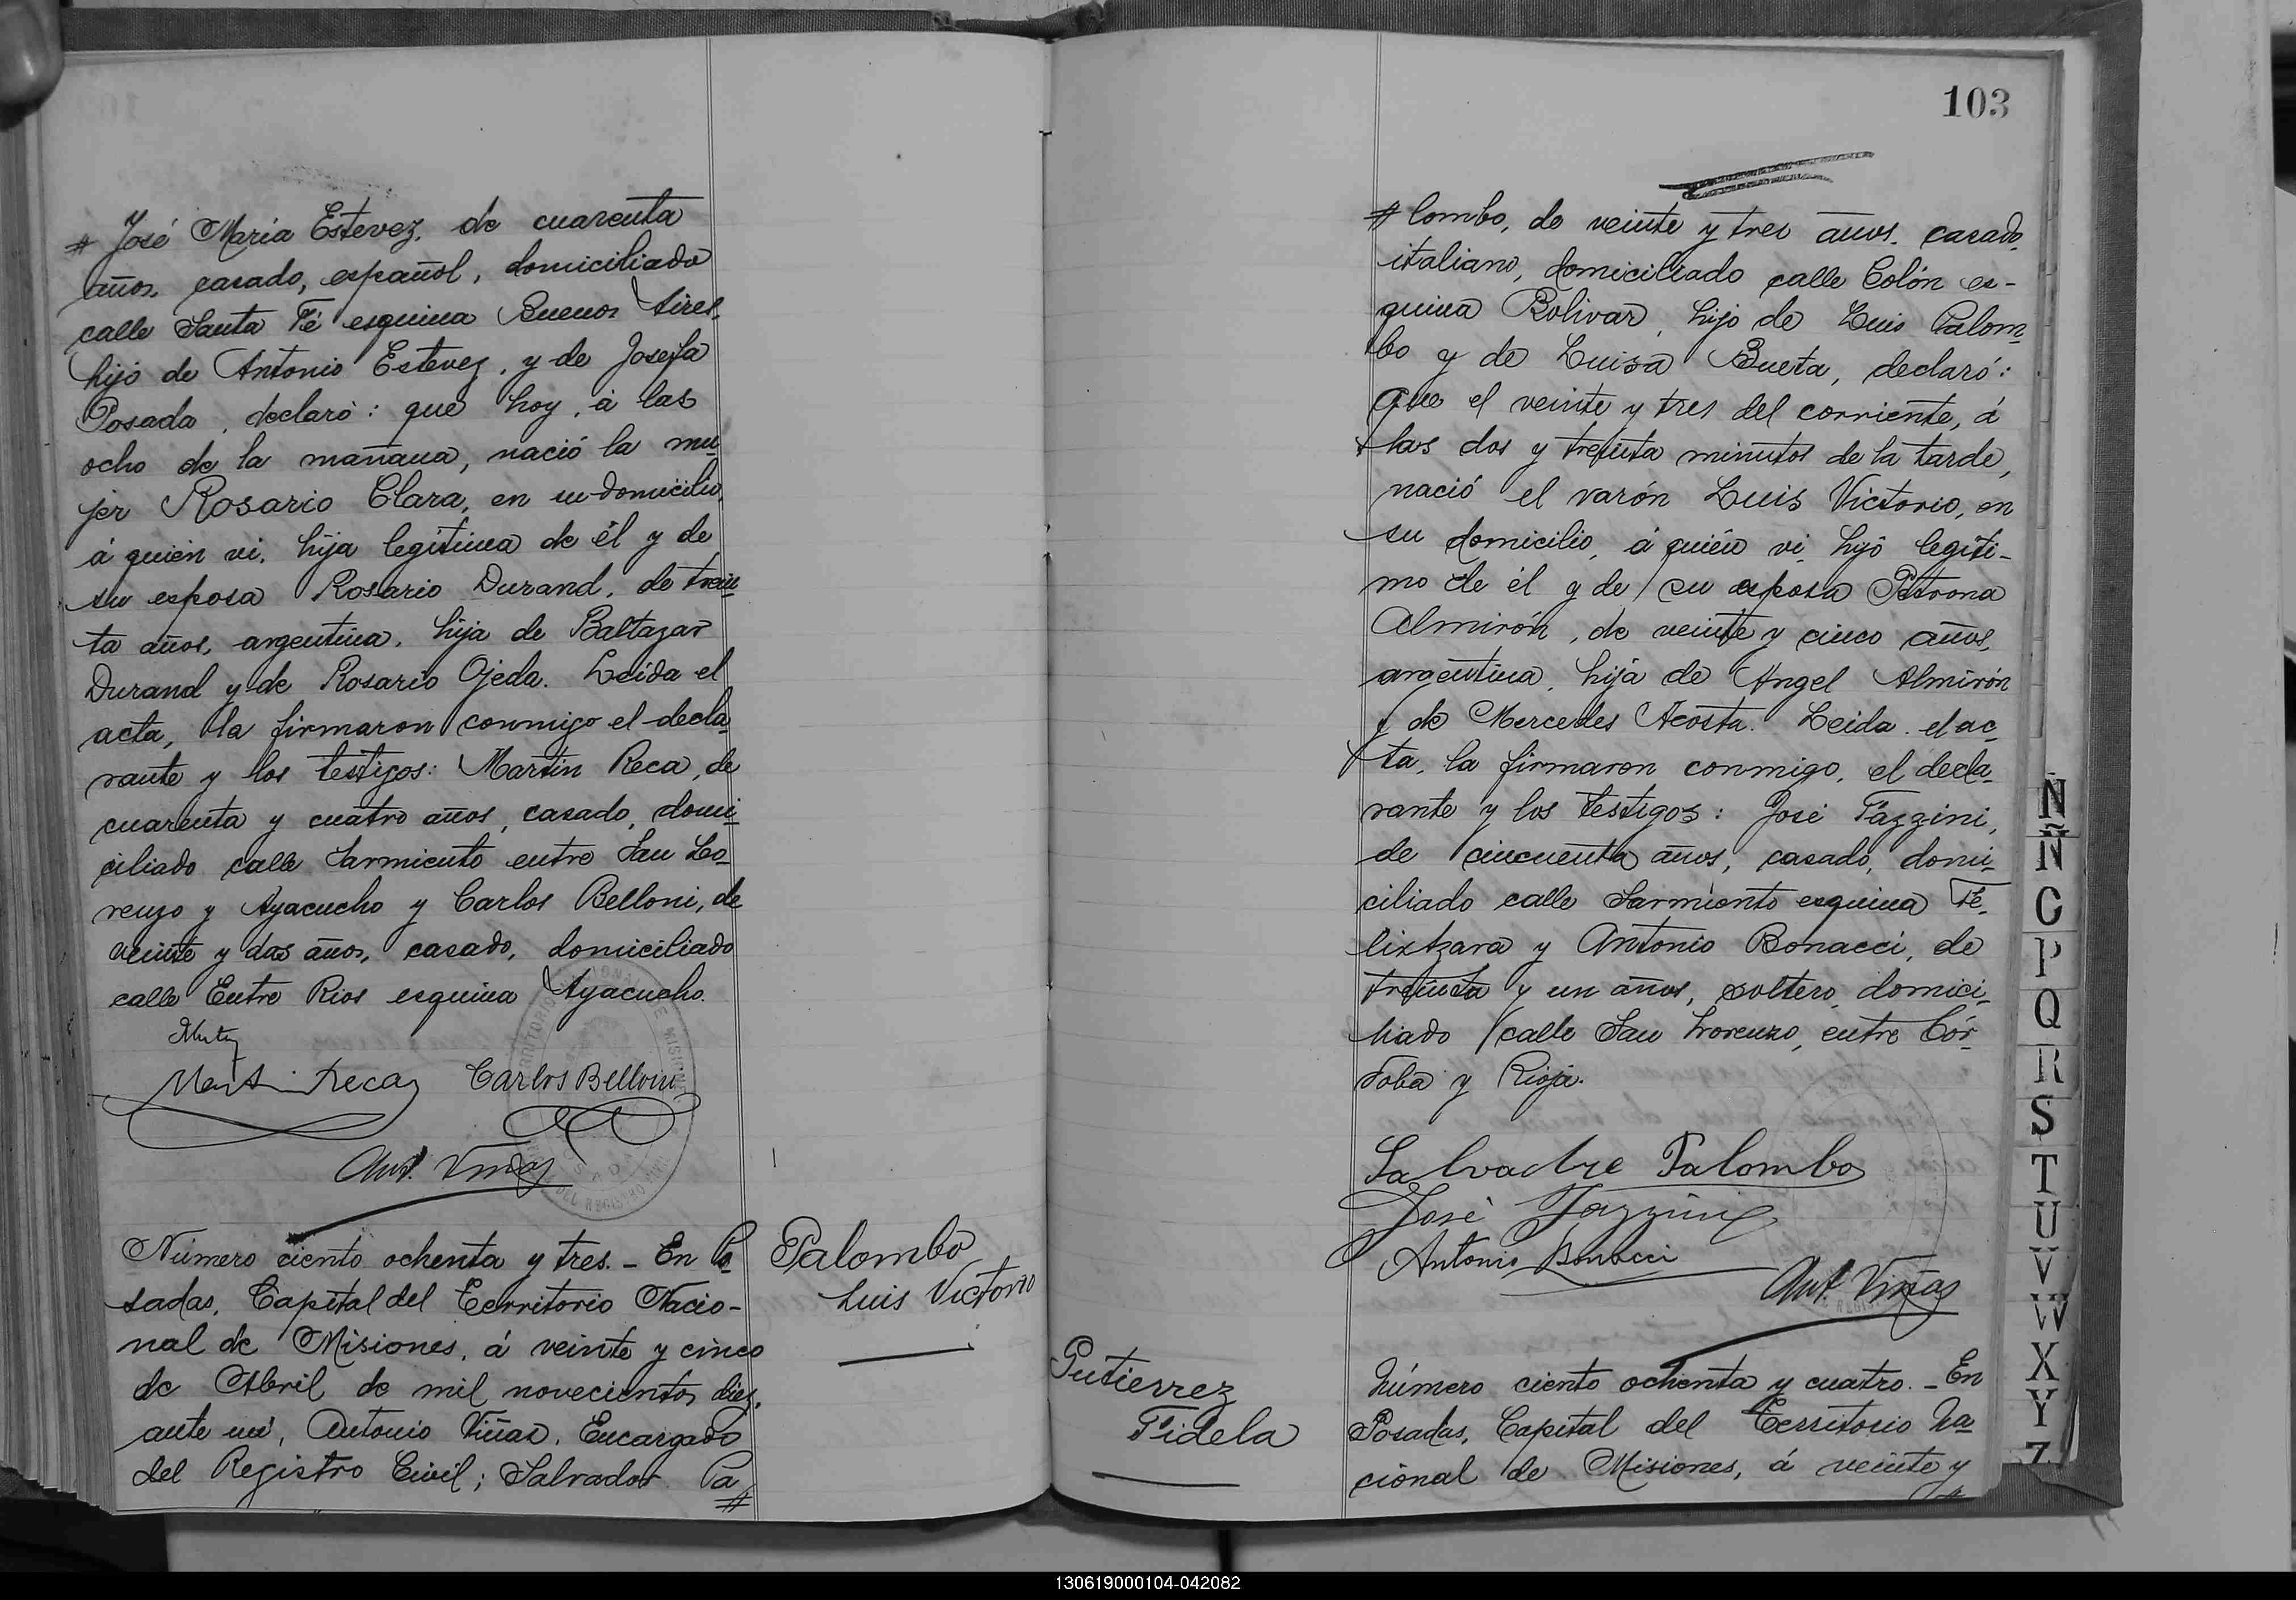 # José María Estevez, de cuarenta
años, casado, español, domiciliado
calle Santa Fé esquina Buenos Aires,
hijo de Antonio Estevez, y de Josefa
Posada, declaró: que hoy, á las
ocho de la mañana, nació la mu
jer Rosario Clara, en su domicilio,
á quien vi, hija legítima de él y de
su esposa Rosario Durand, de trein
ta años, argentina, hija de Baltazar
Durand y de Rosario Ojeda. Leída el
acta, la firmaron conmigo el decla
rante y los testigos: Martin Reca, de
cuarenta y cuatro años, casado, domi
ciliado calle Sarmiento entre San Lo
renzo y Ayacucho y Carlos Belloni, de
veinte y dos años, casado, domiciliado
calle Entre Rios esquina Ayacucho.
Martin Reca Carlos Belloni
Ant. Viñas
Número ciento ochenta y tres. - En Po
sadas, Capital del Territorio Nacio-
nal de Misiones, á veinte y cinco
de Abril de mil novecientos diez,
ante mí, Antonio Viñas, Encargado
del Registro Civil; Salvador Pa
#
Palombo
Luis Victorio
103
# lombo, de veinte y tres años, casado,
italiano, domiciliado calle Colón es-
quina Bolivar, hijo de Luis Palom
bo y de Luisa Bueta, declaró:
Que el veinte y tres del corriente, á
las dos y treinta minutos de la tarde,
nació el varón Luis Victorio, en
su domicilio, á quién vi, hijo legíti-
mo de él y de su esposa Petrona
Almirón, de veinte y cinco años,
argentina, hija de Angel Almirón
y de Mercedes Acosta. Leida el ac
ta, la firmaron conmigo, el decla
rante y los testigos: José Fazzini,
de cincuenta años, casado, domi-
ciliado calle Sarmiento esquina Fé
lix Azara y Antonio Bonacci, de
treinta y un años, soltero, domici
liado calle San Lorenzo, entre Cór
doba y Rioja.
Salvadore Palombo
José Fazzini
Antonio Bonacci
Ant. Viñas
Gutierrez
Fidela
Número ciento ochenta y cuatro. - En
Posadas, Capital del Territorio Na
cional de Misiones, á veinte y
#
N
Ñ
O
P
Q
R
S
T
U
V
W
X
Y
Z
130619000104-042082